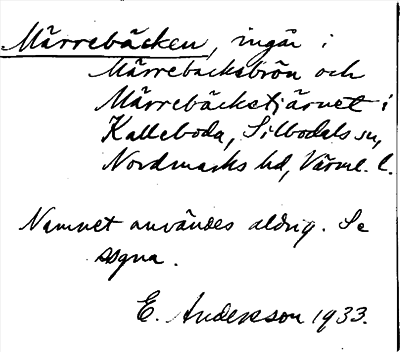 Märrebäcken, ingår i
Märrebäcksbrön och
Märrebäckstjärnet i
Kalleboda, Silbodals sn,
Nordmarks hd, Värml. l.
Namnet användes aldrig. Se
sogna.
E. Andersson 1933.